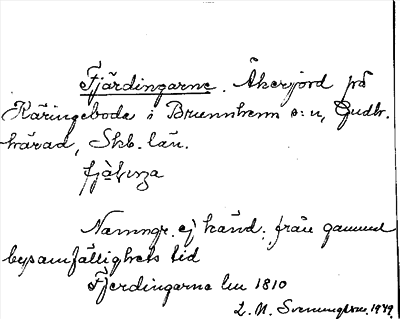 Fjärdingarne. Åkerjord på
Käringeboda i Brunnhem s:n, Gudh.
härad, Skb. län.
Namngr. ej känd: från gammal
bysamfällighets tid
Fjerdingarne lm 1810
L. M. Svenungsson 1949.